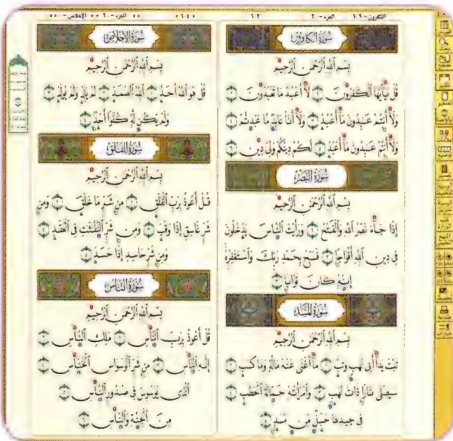 سُورَةُ الكَافِرُونَ
بِسْمِ اللَّهِ الرَّحْمَٰنِ الرَّحِيمِ
قُلْ يَا أَيُّهَا الْكَافِرُونَ لَا أَعْبُدُ مَا تَعْبُدُونَ
وَلَا أَنْتُمْ عَابِدُونَ مَا أَعْبُدُ وَلَا أَنَا عَابِدٌ مَا عَبَدْتُمْ
وَلَا أَنْتُمْ عَابِدُونَ مَا أَعْبُدُ لَكُمْ دِينُكُمْ وَلِيَ دِينِ
سُورَةُ النَّصْرِ
بِسْمِ اللَّهِ الرَّحْمَٰنِ الرَّحِيمِ
إِذَا جَاءَ نَصْرُ اللَّهِ وَالْفَتْحُ وَرَأَيْتَ النَّاسَ يَدْخُلُونَ
فِي دِينِ اللَّهِ أَفْوَاجًا فَسَبِّحْ بِحَمْدِ رَبِّكَ وَاسْتَغْفِرْهُ
إِنَّهُ كَانَ تَوَّابًا
سُورَةُ المَسَدِ
بِسْمِ اللَّهِ الرَّحْمَٰنِ الرَّحِيمِ
تَبَّتْ يَدَا أَبِي لَهَبٍ وَتَبَّ مَا أَغْنَى عَنْهُ مَالُهُ وَمَا كَسَبَ
سَيَصْلَى نَارًا ذَاتَ لَهَبٍ وَامْرَأَتُهُ حَمَّالَةَ الْحَطَبِ
فِي جِيدِهَا حَبْلٌ مِنْ مَسَدٍ
سُورَةُ الإِخْلَاصِ
بِسْمِ اللَّهِ الرَّحْمَٰنِ الرَّحِيمِ
قُلْ هُوَ اللَّهُ أَحَدٌ اللَّهُ الصَّمَدُ لَمْ يَلِدْ وَلَمْ يُولَدْ
وَلَمْ يَكُنْ لَهُ كُفُوًا أَحَدٌ
سُورَةُ الفَلَقِ
بِسْمِ اللَّهِ الرَّحْمَٰنِ الرَّحِيمِ
قُلْ أَعُوذُ بِرَبِّ الْفَلَقِ مِنْ شَرِّ مَا خَلَقَ وَمِنْ
شَرِّ غَاسِقٍ إِذَا وَقَبَ وَمِنْ شَرِّ النَّفَّاثَاتِ فِي الْعُقَدِ
وَمِنْ شَرِّ حَاسِدٍ إِذَا حَسَدَ
سُورَةُ النَّاسِ
بِسْمِ اللَّهِ الرَّحْمَٰنِ الرَّحِيمِ
قُلْ أَعُوذُ بِرَبِّ النَّاسِ مَلِكِ النَّاسِ
إِلَٰهِ النَّاسِ مِنْ شَرِّ الْوَسْوَاسِ الْخَنَّاسِ
الَّذِي يُوَسْوِسُ فِي صُدُورِ النَّاسِ
مِنَ الْجِنَّةِ وَالنَّاسِ